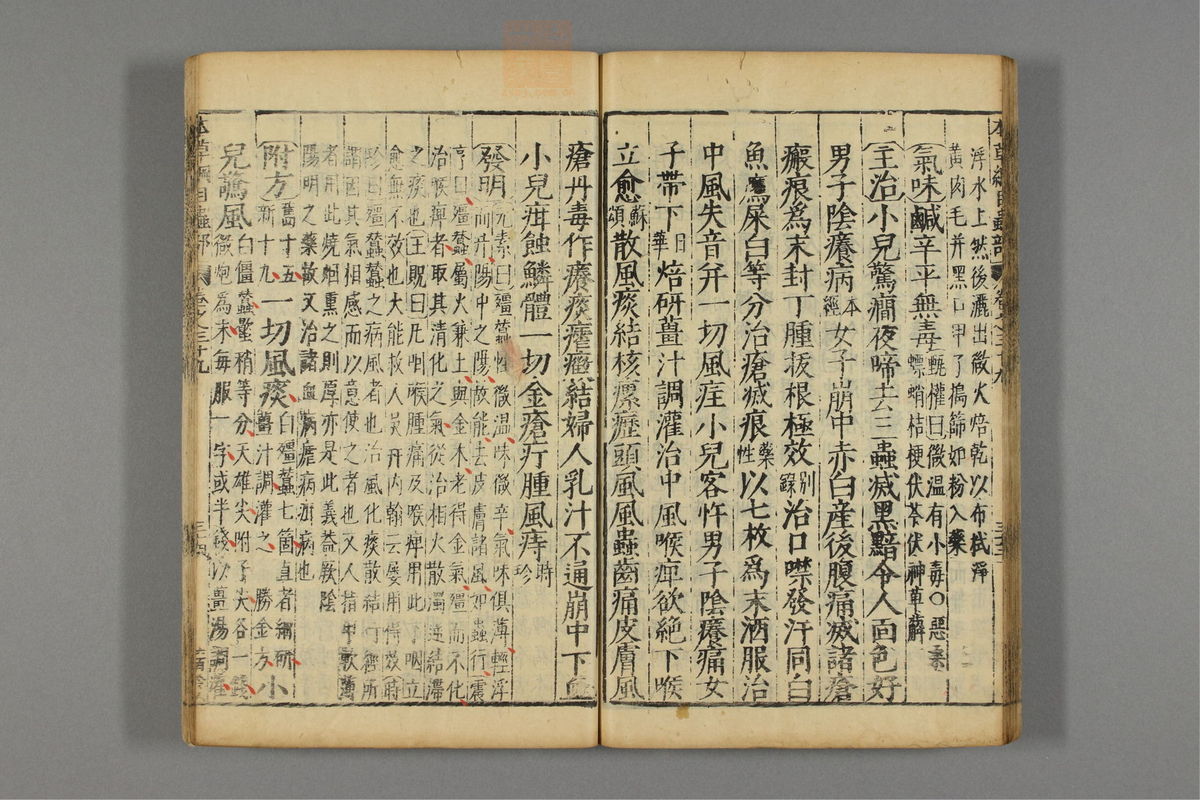 浮水上然後灑出微火焙乾以布拭淨
黃肉毛并黑口甲了搗篩如粉入藥
氣味鹹辛平無毒甄權曰微溫有小毒○惡桑
螵蛸桔梗伏苓伏神萆薢
主治小兒驚癇夜啼去三蟲滅黑黯令人面色好
男子陰癢病本經女子崩中赤白產後腹痛滅諸瘡
瘢痕爲末封丁腫拔根極效別錄治口噤發汗同白
魚鷹屎白等分治瘡滅痕藥性以七枚爲末酒服治
中風失音并一切風疰小兒客忤男子陰癢痛女
子帶下日華焙研薑汁調灌治中風喉痺欲絕下喉
立愈蘇頌散風痰結核瘰癧頭風風蟲齒痛皮膚風
瘡丹毒作癢痰瘧癥結婦人乳汁不通崩中下血
小兒疳蝕鱗體一切金瘡疔腫風痔時珍
發明元素曰殭蠶性微溫味微辛氣味俱薄輕浮
而升陽中之陽故能去皮膚諸風如蟲行震
亨曰殭蠶屬火兼土與金木老得金氣殭而不化
治喉痺者取其清化之氣從治相火散濁逆結滯
之痰也王貺曰凡咽喉腫痛及喉痺用此下咽立
愈無不效也大能救人吳幵內翰云屢用得效時
珍曰殭蠶蠶之病風者也治風化痰散結行經所
謂因其氣相感而以意使之者也又人指甲軟薄
者用此燒烟熏之則厚亦是此義蓋厥陰
陽明之藥故又治諸血病瘧病疳病也
附方舊十五新十九一切風痰白殭蠶七箇直者細研
薑汁調灌之勝金方小
兒驚風白僵蠶蠍稍等分天雄尖附子尖各一錢
微炮爲末每服一字或半錢以薑湯調灌